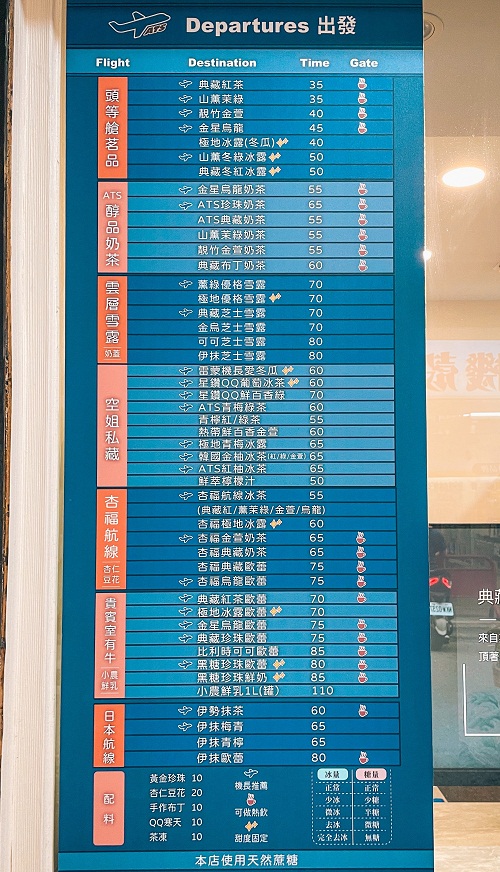 ATS
Departures 出發
Flight Destination Time Gate
頭等艙茗品
典藏紅茶 35
山薰茉綠 35
靚竹金萱 40
金星烏龍 45
極地冰露(冬瓜) 40
山薰冬綠冰露 50
典藏冬紅冰露 50
ATS醇品奶茶
金星烏龍奶茶 55
ATS珍珠奶茶 65
ATS典藏奶茶 55
山薰茉綠奶茶 55
靚竹金萱奶茶 55
典藏布丁奶茶 60
雲層雪露 奶蓋
薰綠優格雪露 70
極地優格雪露 70
典藏芝士雪露 70
金烏芝士雪露 70
可可芝士雪露 80
伊抹芝士雪露 80
空姐私藏
雷蒙機長愛冬瓜 60
星鑽QQ葡萄冰茶 60
星鑽QQ鮮百香綠 70
ATS青梅綠茶 60
青檸紅/綠茶 55
熱帶鮮百香金萱 60
極地青梅冰露 65
韓國金柚冰茶(紅/綠/金萱) 65
ATS紅柚冰茶 65
鮮萃檸檬汁 50
杏福航線 杏仁豆花
杏福航線冰茶 55
(典藏紅/薰茉綠/金萱/烏龍)
杏福極地冰露 60
杏福金萱奶茶 65
杏福典藏奶茶 65
杏福典藏歐蕾 75
杏福烏龍歐蕾 75
貴賓室有牛 小農鮮乳
典藏紅茶歐蕾 70
極地冰露歐蕾 70
金星烏龍歐蕾 75
典藏珍珠歐蕾 75
比利時可可歐蕾 85
黑糖珍珠歐蕾 80
黑糖珍珠鮮奶 85
小農鮮乳1L(罐) 110
日本航線
伊勢抹茶 60
伊抹梅青 65
伊抹青檸 65
伊抹歐蕾 80
配料
黃金珍珠 10
杏仁豆花 20
手作布丁 10
QQ寒天 10
茶凍 10
機長推薦
可做熱飲
甜度固定
冰量 糖量
正常 正常
少冰 少糖
微冰 半糖
去冰 微糖
完全去冰 無糖
本店使用天然蔗糖
典藏
來自
頂著